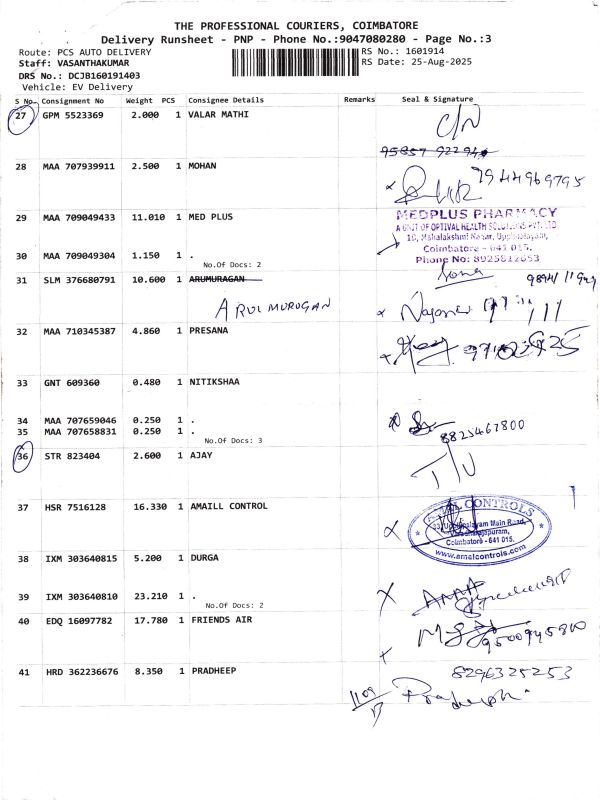 THE PROFESSIONAL COURIERS, COIMBATORE
Delivery Runsheet - PNP - Phone No.:9047080280 - Page No.:3
Route: PCS AUTO DELIVERY RS No.: 1601914
Staff: VASANTHAKUMAR RS Date: 25-Aug-2025
DRS No.: DCJB160191403
Vehicle: EV Delivery
S No. Consignment No Weight PCS Consignee Details Remarks Seal & Signature
27 GPM 5523369 2.000 1 VALAR MATHI C/N
28 MAA 707939911 2.500 1 MOHAN
7944969795
29 MAA 709049433 11.010 1 MED PLUS MEDPLUS PHARMACY
A UNIT OF OPTIVAL HEALTH SOLUTIONS PVT. LTD
Coimbatore - 641 015.
30 MAA 709049304 1.150 1 .
Phone No: 8925812653
No.Of Docs: 2
31 SLM 376680791 10.600 1 ARUMURAGAN
ARUL MUROGAN
32 MAA 710345387 4.860 1 PRESANA
33 GNT 609360 0.480 1 NITIKSHAA
34 MAA 707659046 0.250 1 .
35 MAA 707658831 0.250 1 .
8825467800
No.Of Docs: 3
36 STR 823404 2.600 1 AJAY
37 HSR 7516128 16.330 1 AMAILL CONTROL
AMEL CONTROLS
Coimbatore - 641 015.
www.amelcontrols.com
38 IXM 303640815 5.200 1 DURGA
39 IXM 303640810 23.210 1 .
No.Of Docs: 2
40 EDQ 16097782 17.780 1 FRIENDS AIR
41 HRD 362236676 8.350 1 PRADHEEP 8296325253